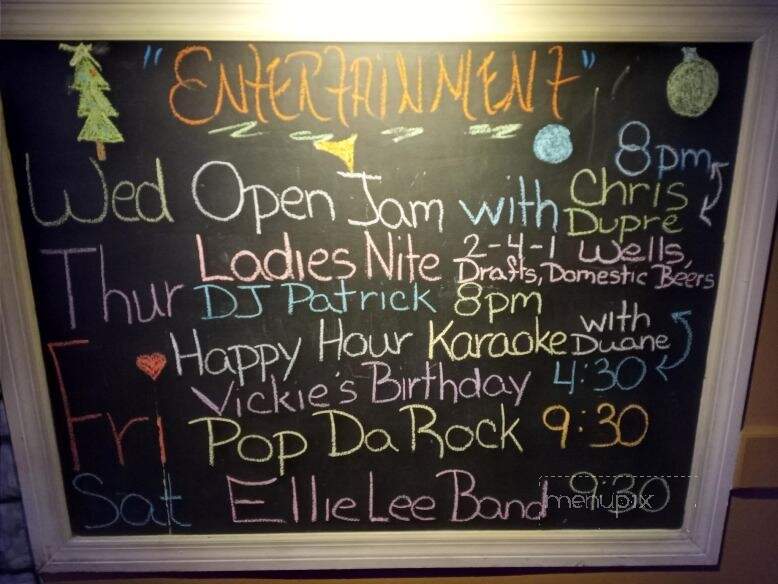 "ENTERTAINMENT"
8pm
Wed Open Jam with Chris Dupré
Thur Ladies Nite 2-4-1 Wells, Drafts, Domestic Beers
DJ Patrick 8pm
Fri Happy Hour Karaoke with Duane
Vickie's Birthday 4:30
Pop Da Rock 9:30
Sat Ellie Lee Band 9:30
menupix